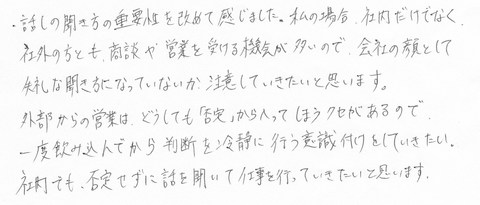 ・話しの聞き方の重要性を改めて感じました。私の場合、社内だけでなく、
社外の方とも、商談や営業を受ける機会が多いので、会社の顔として
失礼な聞き方になっていないか、注意していきたいと思います。
外部からの営業は、どうしても「否定」から入ってしまうクセがあるので、
一度飲み込んでから判断を冷静に行う意識付けをしていきたい。
社内でも、否定せずに話を聞いて仕事を行っていきたいと思います。